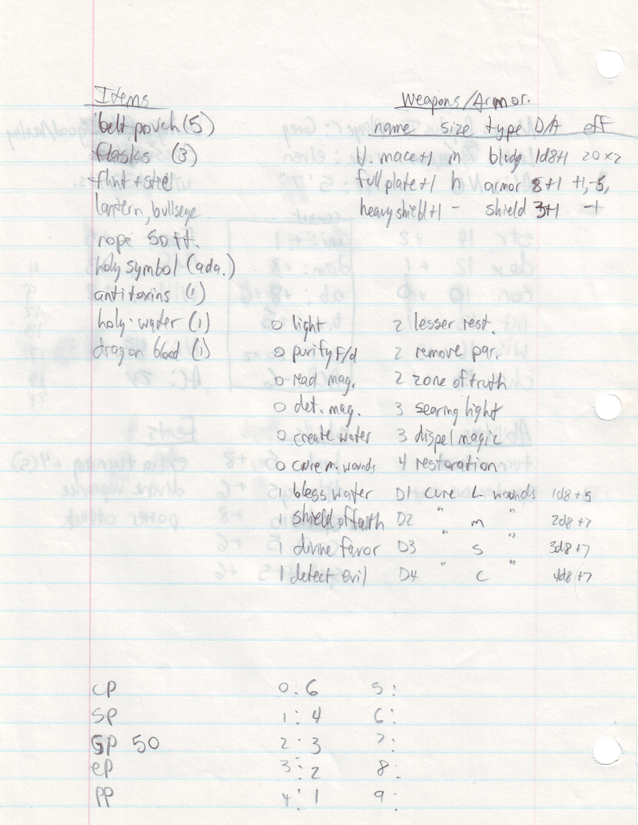 Items
belt pouch (5)
flasks (3)
flint + steel
lantern, bullseye
rope 50 ft.
holy symbol (ada.)
antitoxins (1)
holy water (1)
dragon blood (1)
Weapons/Armor.
name size type D/A eff
mace+1 m bludg 1d8+1 20x2
full plate+1 armor 8+1 +1,-5,
heavy shield+1 - shield 3+1 -1
0 light 2 lesser rest.
0 purify F/d 2 remove par.
0 read mag. 2 zone of truth
0 det. mag. 3 searing light
0 create water 3 dispel magic
0 cure m. wounds 4 restoration
1 bless water D1 cure L wounds 1d8+5
1 shield of faith D2 " m " 2d8+7
1 divine favor D3 " s " 3d8+7
1 detect evil D4 " c " 4d8+7
cp 0: 6 5:
sp 1: 4 6:
gp 50 2: 3 7:
ep 3: 2 8:
pp 4: 1 9: